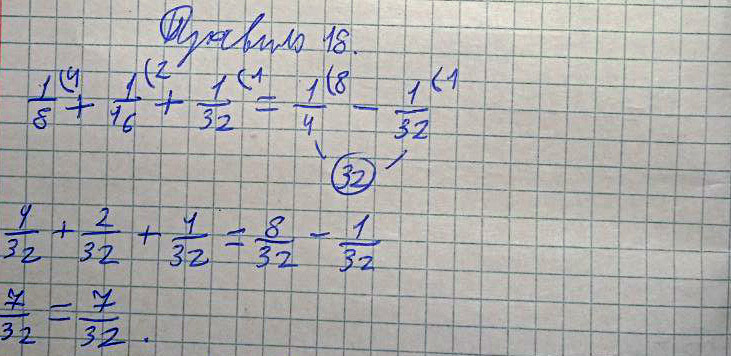 Правило 18.
1/8 (4 + 1/16 (2 + 1/32 (1 = 1/4 (8 - 1/32 (1
32
4/32 + 2/32 + 1/32 = 8/32 - 1/32
7/32 = 7/32.